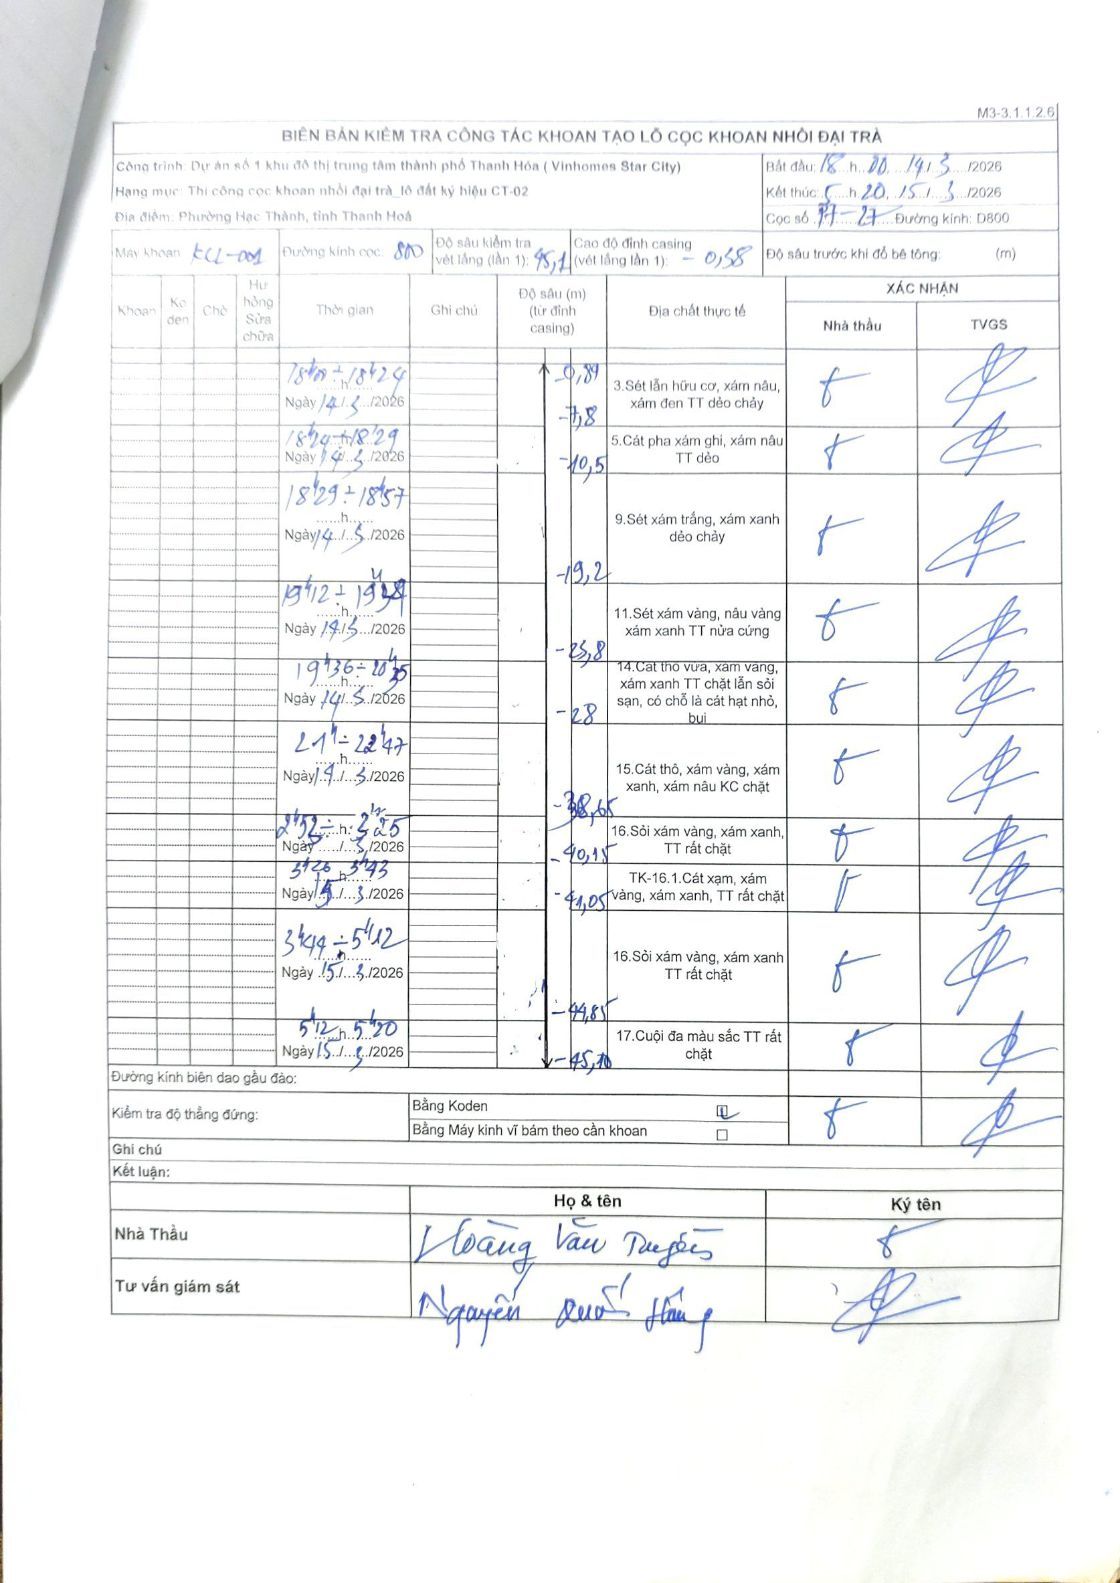 M3-3.1.1.2.6
BIÊN BẢN KIỂM TRA CÔNG TÁC KHOAN TẠO LỖ CỌC KHOAN NHỒI ĐẠI TRÀ
Công trình: Dự án số 1 khu đô thị trung tâm thành phố Thanh Hóa ( Vinhomes Star City)
Bắt đầu: 18 h 00, 14/ 3 /2026
Hạng mục: Thi công cọc khoan nhồi đại trà_lô đất ký hiệu CT-02
Kết thúc: 5 h 20, 15/ 3 /2026
Địa điểm: Phường Hạc Thành, tỉnh Thanh Hoá
Cọc số Đường kính: D800
Máy khoan KCL-001
Đường kính cọc: 800
Độ sâu kiểm tra vét lắng (lần 1): 45,1
Cao độ đỉnh casing (vét lắng lần 1): - 0,38
Độ sâu trước khi đổ bê tông: (m)
Khoan
Ko đen
Chờ
Hư hỏng Sửa chữa
Thời gian
Ghi chú
Độ sâu (m) (từ đỉnh casing)
Địa chất thực tế
XÁC NHẬN
Nhà thầu
TVGS
18h00 ÷ 18h24
Ngày 14/ 3 /2026
-0,89
-7,8
3.Sét lẫn hữu cơ, xám nâu,
xám đen TT dẻo chảy
18h24 ÷ 18h29
Ngày 14/ 3 /2026
-10,5
5.Cát pha xám ghi, xám nâu
TT dẻo
18h29 ÷ 18h57
Ngày 14/ 3 /2026
-19,2
9.Sét xám trắng, xám xanh
dẻo chảy
19h12 ÷
Ngày 14/ 3 /2026
8
11.Sét xám vàng, nâu vàng
xám xanh TT nửa cứng
19h36 ÷ 20h35
Ngày 14/ 3 /2026
-28
14.Cát thô vừa, xám vàng,
xám xanh TT chặt lẫn sỏi
sạn, có chỗ là cát hạt nhỏ,
bụi
21h ÷ 22h47
Ngày 14/ 3 /2026
-38,65
15.Cát thô, xám vàng, xám
xanh, xám nâu KC chặt
2h52 ÷ 3h25
Ngày / 3 /2026
-40,15
16.Sỏi xám vàng, xám xanh,
TT rất chặt
3h26 3h43
Ngày 15/ 3 /2026
-41,05
TK-16.1.Cát xạm, xám
vàng, xám xanh, TT rất chặt
3h44 ÷ 5h12
Ngày 15/ 3 /2026
-44,85
16.Sỏi xám vàng, xám xanh
TT rất chặt
5h12 5h20
Ngày 15/ 3 /2026
-45,10
17.Cuội đa màu sắc TT rất
chặt
Đường kính biên dao gầu đào:
Kiểm tra độ thẳng đứng:
Bằng Koden
Bằng Máy kinh vĩ bám theo cần khoan
Ghi chú
Kết luận:
Họ & tên
Ký tên
Nhà Thầu
Hoàng Văn
Tư vấn giám sát
Nguyễn